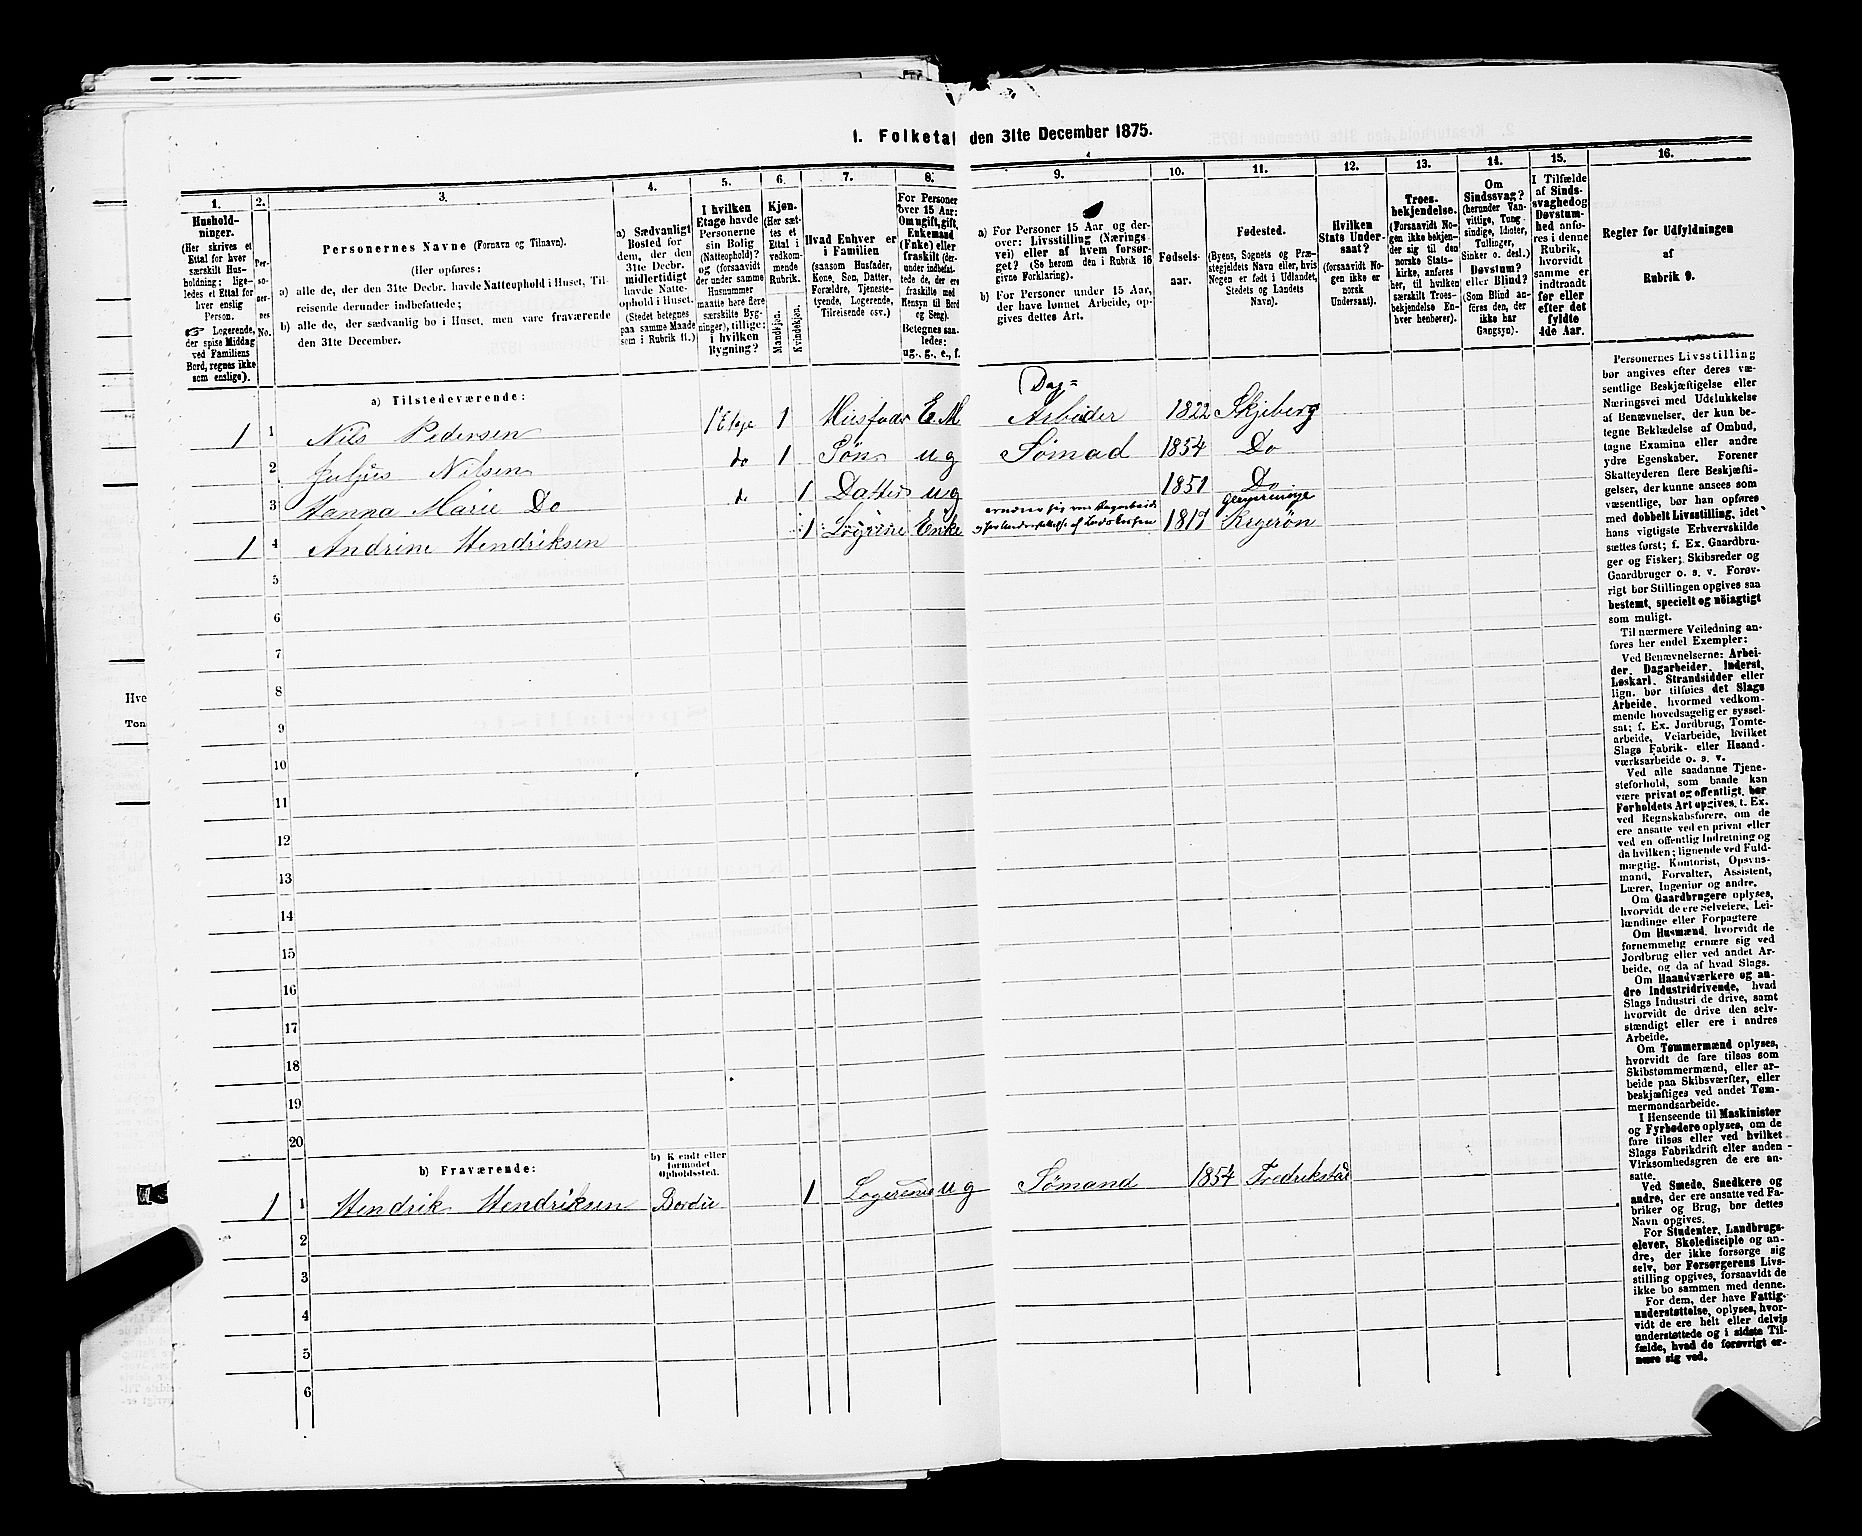 1. Folketal den 31te December 1875.
1.
2.
3.
4.
5.
6.
7.
8.
9.
10.
11.
12.
13.
14.
15.
16.
Hushold-
ninger.
(Her skrives et
Ettal for hver
særskilt Hus-
holdning; lige-
ledes et Ettal for
hver enslig
Person.
☞ Logerende,
der spise Middag
ved Familiens
Bord, regnes ikke
som enslige).
Per-
so-
ner-
nes
No.
Personernes Navne (Fornavn og Tilnavn).
(Her opføres:
a) alle de, der den 31te Decbr. havde Natteophold i Huset, Til-
reisende derunder indbefattede;
b) alle de, der sædvanlig bo i Huset, men vare fraværende
den 31te December.
a) Sædvanligt
Bosted for
dem, der den
31te Decbr.
midlertidigt
havde Natte-
ophold i Huset.
(Stedet betegnes
paa samme Maade
som i Rubrik 11.)
I hvilken
Etage havde
Personerne
sin Bolig
(Natteophold)?
og (forsaavidt
der under samme
Husnummer
maatte høre flere
særskilte Byg-
ninger), tillige:
i hvilken
Bygning?
Kjøn.
(Her sæt-
tes et
Ettal i
vedkom-
mende
Rubrik.
Mandkjøn.
Kvindekjøn.
Hvad Enhver er
i Familien
(saasom Husfader,
Kone, Søn, Datter,
Forældre, Tjeneste-
tyende, Logerende,
Tilreisende osv.)
For Personer
over 15 Aar:
Om ugift, gift,
Enkemand
(Enke) eller
fraskilt (der-
under indbefat-
tede, der ere
fraskilte med
Hensyn til Bord
og Seng).
Betegnes saa-
ledes:
ug., g., e., f.
a) For Personer 15 Aar og der-
over: Livsstilling (Nærings-
vei) eller af hvem forsør-
get? (Se herom den i Rubrik 16
givne Forklaring).
b) For Personer under 15 Aar,
der have lønnet Arbeide, op-
gives dettes Art.
Fødsels-
aar.
Fødested.
(Byens, Sognets og Præ-
stegjeldets Navn eller, hvis
Nogen er født i Udlandet,
Stedets og Landets
Navn).
Hvilken
Stats Under-
saat?
(forsaavidt No-
gen ikke er
norsk
Undersaat).
Troes-
bekjendelse.
(Forsaavidt No-
gen ikke bekjen-
der sig til den
norske Stats-
kirke, anføres
her, til hvilken
særskilt Troes-
bekjendelse En-
hver henhører).
Om
Sindssvag?
(herunder Van-
vittige, Tung-
sindige, Idioter,
Tullinger,
Sinker o. desl.)
Døvstum?
eller Blind?
(Som Blind an-
føres den, der
ikke har
Gangsyn).
I Tilfælde
af Sinds-
svaghed og
Døvstum-
hed anfø-
res i denne
Rubrik,
hvorvidt
samme er
indtraadt
før eller
efter det
fyldte
4de Aar.
Regler for Udfyldningen
af
Rubrik 9.
a) Tilstedeværende:
Dag=
1 1 Nils Pedersen 1ste Etage 1 Husfader E M Arbeider 1822 Skjeberg
2 Juljus Nilsen do 1 Søn ug Sømad 1854 Do
3 Hanna Marie Do do 1 Datter ug 1851 Do
1 4 Andrine Hendriksen 1 Enke
5
6
7
8
9
10
11
12
13
14
15
16
17
18
19
20
b) Fraværende:
b) Kjendt eller
formodet
Opholdssted.
1 1 Hendrik Hendriksen 1 Logerende ug Sømand 1854 Fredrikstad
2
3
4
5
6
Personernes Livsstilling
bør angives efter deres væ-
sentlige Beskjæftigelse eller
Næringsvei med Udelukkelse
af Benævnelser, der kun be-
tegne Beklædelse af Ombud,
tagne Examina eller andre
ydre Egenskaber. Forener
Skatteyderen flere Beskjæfti-
gelser, der kunne ansees som
væsentlige, bør han opføres
med dobbelt Livsstilling, idet
hans vigtigste Erhvervskilde
sættes først; f. Ex. Gaardbru-
ger og Fisker; Skibsreder og
Gaardbruger o. s. v. Forøv-
rigt bør Stillingen opgives saa
bestemt, specielt og nöiagtigt
som muligt.
Til nærmere Veiledning an-
føres her endel Exempler:
Ved Benævnelserne: Arbei-
der, Dagarbeider, Inderst,
Løskarl, Strandsidder eller
lign. bør tilføies det Slags
Arbeide, hvormed vedkom-
mende hovedsagelig er syssel-
sat; f. Ex. Jordbrug, Tomte-
arbeide, Veiarbeide, hvilket
Slags Fabrik- eller Haand-
værksarbeide o. s. v.
Ved alle saadanne Tjene-
steforhold, som baade kan
være privat og offentligt, bør
Forholdets Art opgives, t. Ex.
ved Regnskabsførere, om de
ere ansatte ved en privat eller
ved en offentlig Indretning og
da hvilken; lignende ved Fuld-
mægtig, Kontorist, Opsyns-
mand, Forvalter, Assistent,
Lærer, Ingeniør og andre.
Om Gaardbrugere oplyses,
hvorvidt de ere Selveiere, Lei-
lændinge eller Forpagtere
Om Husmænd, hvorvidt de
fornemmelig ernære sig ved
Jordbrug eller ved andet Ar-
beide, og da af hvad Slags.
Om Haandværkere og an-
dre Industridrivende, hvad
Slags Industri de drive, samt
hvorvidt de drive den selv-
stændigt eller ere i andres
Arbeide.
Om Tømmermænd oplyses,
hvorvidt de fare tilsøs som
Skibstømmermænd, eller ar-
beide paa Skibsværfter, eller
beskjæftiges ved andet Tøm-
mermandsarbeide.
I Henseende til Maskinister
og Fyrbødere oplyses, om de
fare tilsøs eller ved hvilket
Slags Fabrikdrift eller anden
Virksomhedsgren de ere an-
satte.
Ved Smede, Snedkere og
andre, der ere ansatte ved Fa-
briker og Brug, bør dettes
Navn opgives.
For Studenter, Landbrugs-
elever, Skoledisciple og an-
dre, der ikke forsørge sig
selv, bør Forsørgerens Livs-
stilling opgives, forsaavidt de
ikke bo sammen med denne.
For dem, der have Fattig-
understøttelse, oplyses, hvor-
vidt de ere helt eller delvis
understøttede og i sidste Til-
fælde, hvad de forøvrigt er-
nære sig ved.